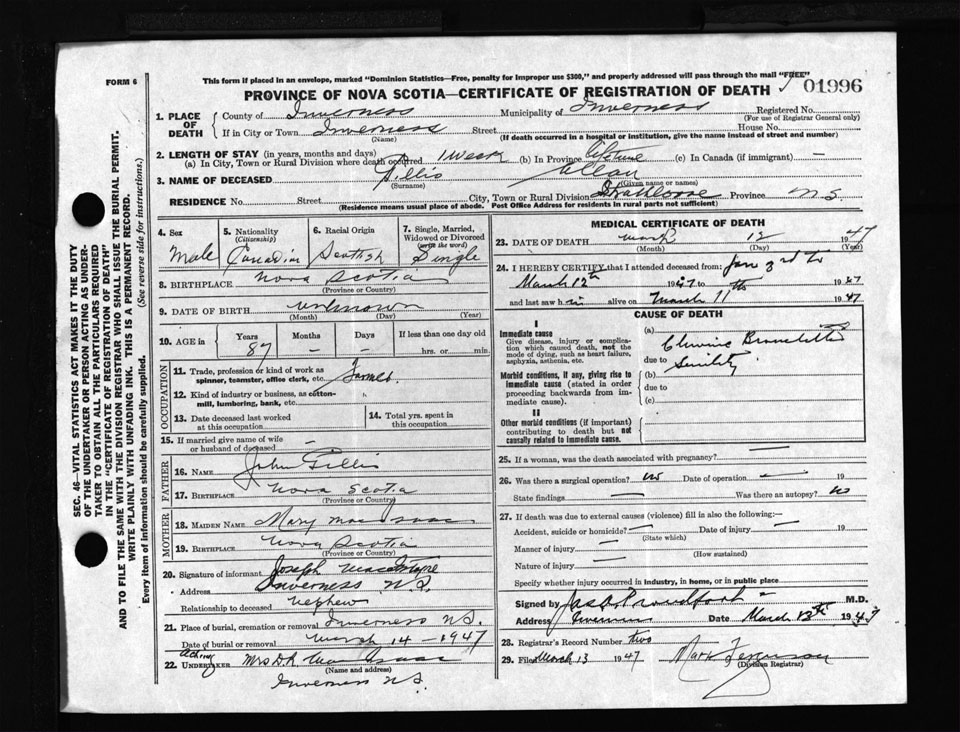 FORM 6
This form if placed in an envelope, marked "Dominion Statistics—Free, penalty for improper use $300," and properly addressed will pass through the mail "FREE"
PROVINCE OF NOVA SCOTIA—CERTIFICATE OF REGISTRATION OF DEATH
01996
1. PLACE OF DEATH
County of Inverness Municipality of Inverness Registered No.
(For use of Registrar General only)
If in City or Town Inverness Street House No.
(Name) (If death occurred in a hospital or institution, give the name instead of street and number)
2. LENGTH OF STAY (in years, months and days)
(a) In City, Town or Rural Division where death occurred 1 week (b) In Province lifetime (c) In Canada (if immigrant) —
3. NAME OF DECEASED Gillis Allan
(Surname) (Given name or names)
RESIDENCE No. Street City, Town or Rural Division Strathlorne Province N.S.
(Residence means usual place of abode. Post Office Address for residents in rural parts not sufficient)
4. Sex Male
5. Nationality (Citizenship) Canadian
6. Racial Origin Scottish
7. Single, Married, Widowed or Divorced (write the word) Single
8. BIRTHPLACE Nova Scotia
(Province or Country)
9. DATE OF BIRTH unknown
(Month) (Day) (Year)
10. AGE in Years 87 Months — Days — If less than one day old
hrs. or min.
OCCUPATION
11. Trade, profession or kind of work as spinner, teamster, office clerk, etc. Farmer
12. Kind of industry or business, as cotton-mill, lumbering, bank, etc.
13. Date deceased last worked at this occupation
14. Total yrs. spent in this occupation
15. If married give name of wife or husband of deceased —
FATHER
16. NAME John Gillis
17. BIRTHPLACE Nova Scotia
(Province or Country)
MOTHER
18. MAIDEN NAME Mary MacIsaac
19. BIRTHPLACE Nova Scotia
(Province or Country)
20. Signature of informant Joseph MacIntyre
Address Inverness N.S.
Relationship to deceased Nephew
21. Place of burial, cremation or removal Inverness N.S.
Date of burial or removal March 14 — 1947
Acting
22. UNDERTAKER Mrs D.R. MacIsaac
(Name and address)
Inverness N.S.
MEDICAL CERTIFICATE OF DEATH
23. DATE OF DEATH March 12 1947
(Month) (Day) (Year)
24. I HEREBY CERTIFY that I attended deceased from Jan 3rd to
March 12th 1947 1947
and last saw him alive on March 11th 1947
CAUSE OF DEATH
I
Immediate cause
Give disease, injury or complication which caused death, not the mode of dying, such as heart failure, asphyxia, asthenia, etc.
(a) Chronic Bronchitis
due to
Morbid conditions, if any, giving rise to immediate cause (stated in order proceeding backwards from immediate cause).
(b) Senility
due to
(c)
II
Other morbid conditions (if important) contributing to death but not causally related to immediate cause.
25. If a woman, was the death associated with pregnancy? —
26. Was there a surgical operation? no Date of operation — 19
State findings — Was there an autopsy? no
27. If death was due to external causes (violence) fill in also the following:—
Accident, suicide or homicide? — Date of injury — 19
(State which)
Manner of injury —
(How sustained)
Nature of injury —
Specify whether injury occurred in industry, in home, or in public place
Signed by Jas Proudfoot M.D.
Address Inverness Date March 13th 1947
28. Registrar's Record Number two
29. Filed March 13 1947 Mark Ferguson
(Division Registrar)
SEC. 46—VITAL STATISTICS ACT MAKES IT THE DUTY
OF THE UNDERTAKER OR PERSON ACTING AS UNDER-
TAKER TO OBTAIN ALL THE PARTICULARS REQUIRED
IN THE "CERTIFICATE OF REGISTRATION OF DEATH"
AND TO FILE THE SAME WITH THE DIVISION REGISTRAR WHO SHALL ISSUE THE BURIAL PERMIT.
WRITE PLAINLY WITH UNFADING INK. THIS IS A PERMANENT RECORD.
Every item of information should be carefully supplied. (See reverse side for instructions.)